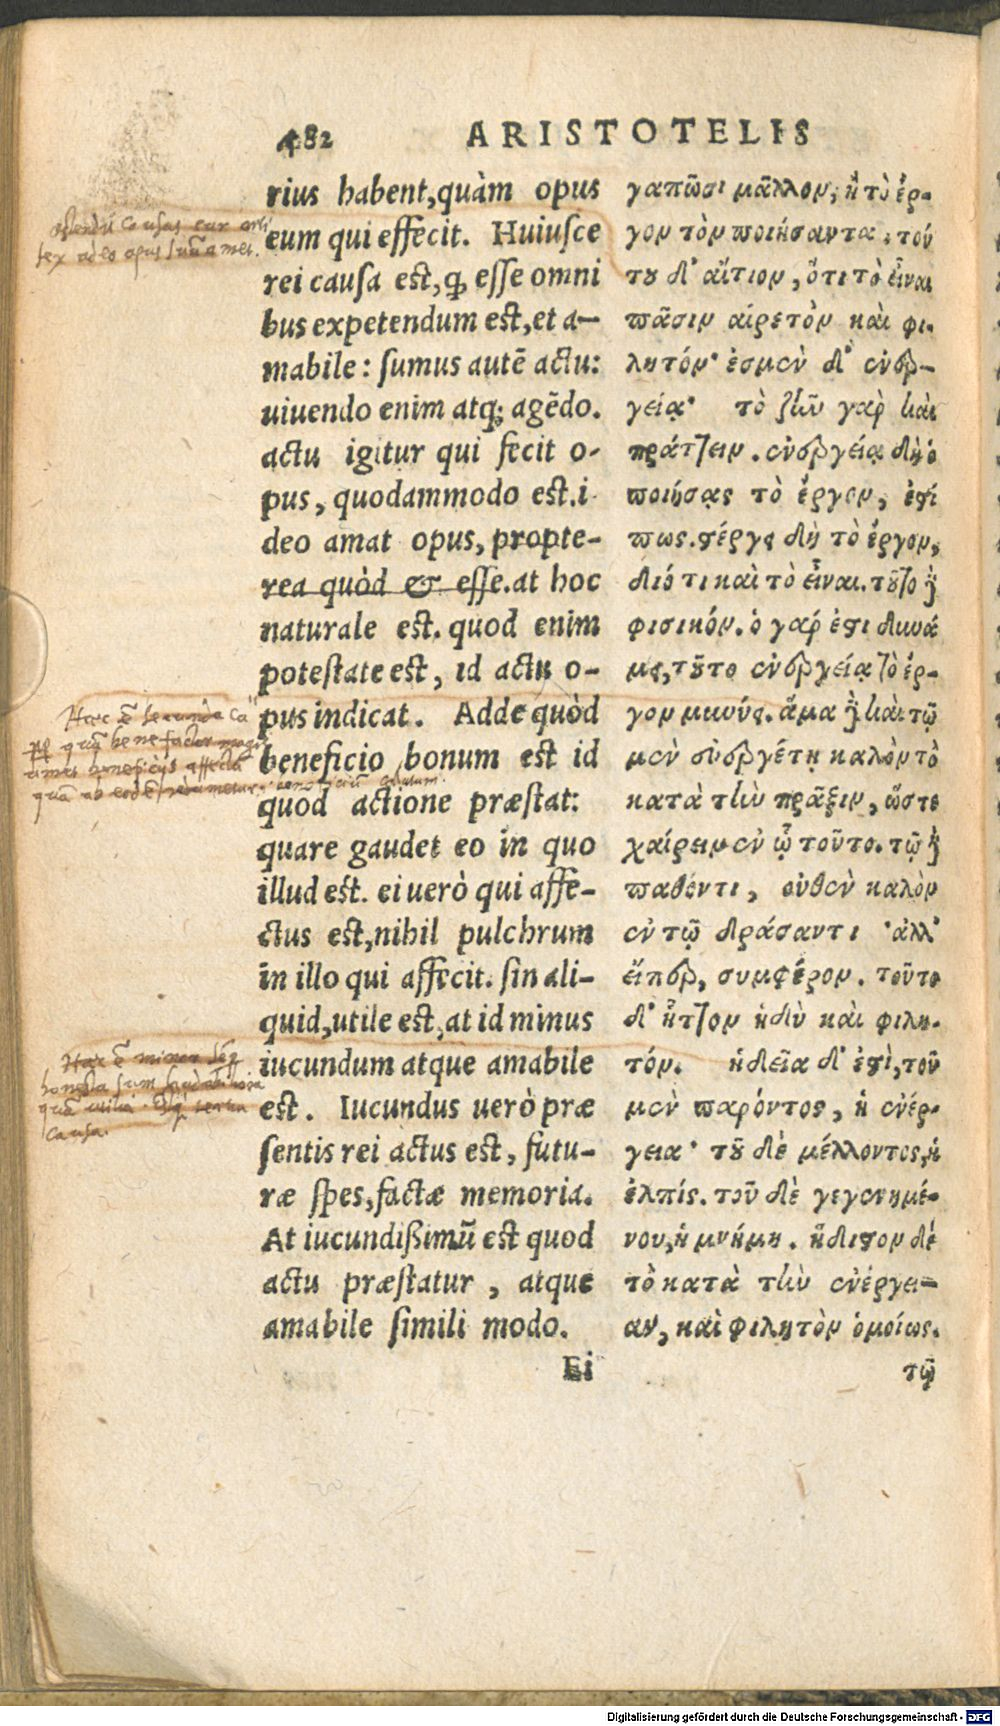 482 ARISTOTELIS
rius habent, quàm opus
eum qui effecit. Huiusce
rei causa est, ꝙ esse omni
bus expetendum est, et a-
mabile: sumus autē actu:
uiuendo enim atq; agēdo.
actu igitur qui fecit o-
pus, quodammodo est. i
deo amat opus, propte-
rea quòd & esse. at hoc
naturale est. quod enim
potestate est, id actu o-
pus indicat. Adde quòd
beneficio bonum est id
quod actione præstat:
quare gaudet eo in quo
illud est. ei uerò qui affe-
ctus est, nihil pulchrum
in illo qui affecit. sin ali-
quid, utile est, at id minus
iucundum atque amabile
est. Iucundus uerò præ
sentis rei actus est, futu-
ræ spes, factæ memoria.
At iucundißimū est quod
actu præstatur, atque
amabile simili modo.
Ei
γαπῶσι μᾶλλον, ἢ τὸ ἔρ-
γον τὸν ποιήσαντα. τού
του δ' αἴτιον, ὅτι τὸ εἶναι
πᾶσιν αἱρετὸν καὶ φι-
λητόν· ἐσμὲν δ' ἐνερ-
γείᾳ· τὸ ζῆν γὰρ καὶ
πράττειν. ἐνεργείᾳ δὴ ὁ
ποιήσας τὸ ἔργον, ἐστί
πως. στέργει δὴ τὸ ἔργον,
διό τι καὶ τὸ εἶναι. τοῦτο δὲ
φισικόν. ὁ γάρ ἐστι δυνά
μει, τοῦτο ἐνεργείᾳ τὸ ἔρ-
γον μηνύει. ἅμα δὲ καὶ τῷ
μὲν εὐεργέτῃ καλὸν τὸ
κατὰ τὴν πρᾶξιν, ὥστε
χαίρειν ἐν ᾧ τοῦτο. τῷ δὲ
παθόντι, οὐθὲν καλὸν
ἐν τῷ δράσαντι· ἀλλ'
εἴπερ, συμφέρον. τοῦτο
δ' ἧττον ἡδὺ καὶ φιλη-
τόν. ἡδεῖα δ' ἐστὶ, τοῦ
μὲν παρόντος, ἡ ἐνέρ-
γεια· τοῦ δὲ μέλλοντος, ἡ
ἐλπίς. τοῦ δὲ γεγενημέ-
νου, ἡ μνήμη. ἥδιστον δὲ
τὸ κατὰ τὴν ἐνέργει-
αν, καὶ φιλητὸν ὁμοίως.
τῷ
ostendit causas cur arti
fex adeo opus suū amet.
Haec ē secunda ca
quā benefactor magis
amet beneficijs affectū
quā ab eodē redametur.
Haec ē minor
honesta sunt
quā utilia. tertia
causa.
Digitalisierung gefördert durch die Deutsche Forschungsgemeinschaft - DFG